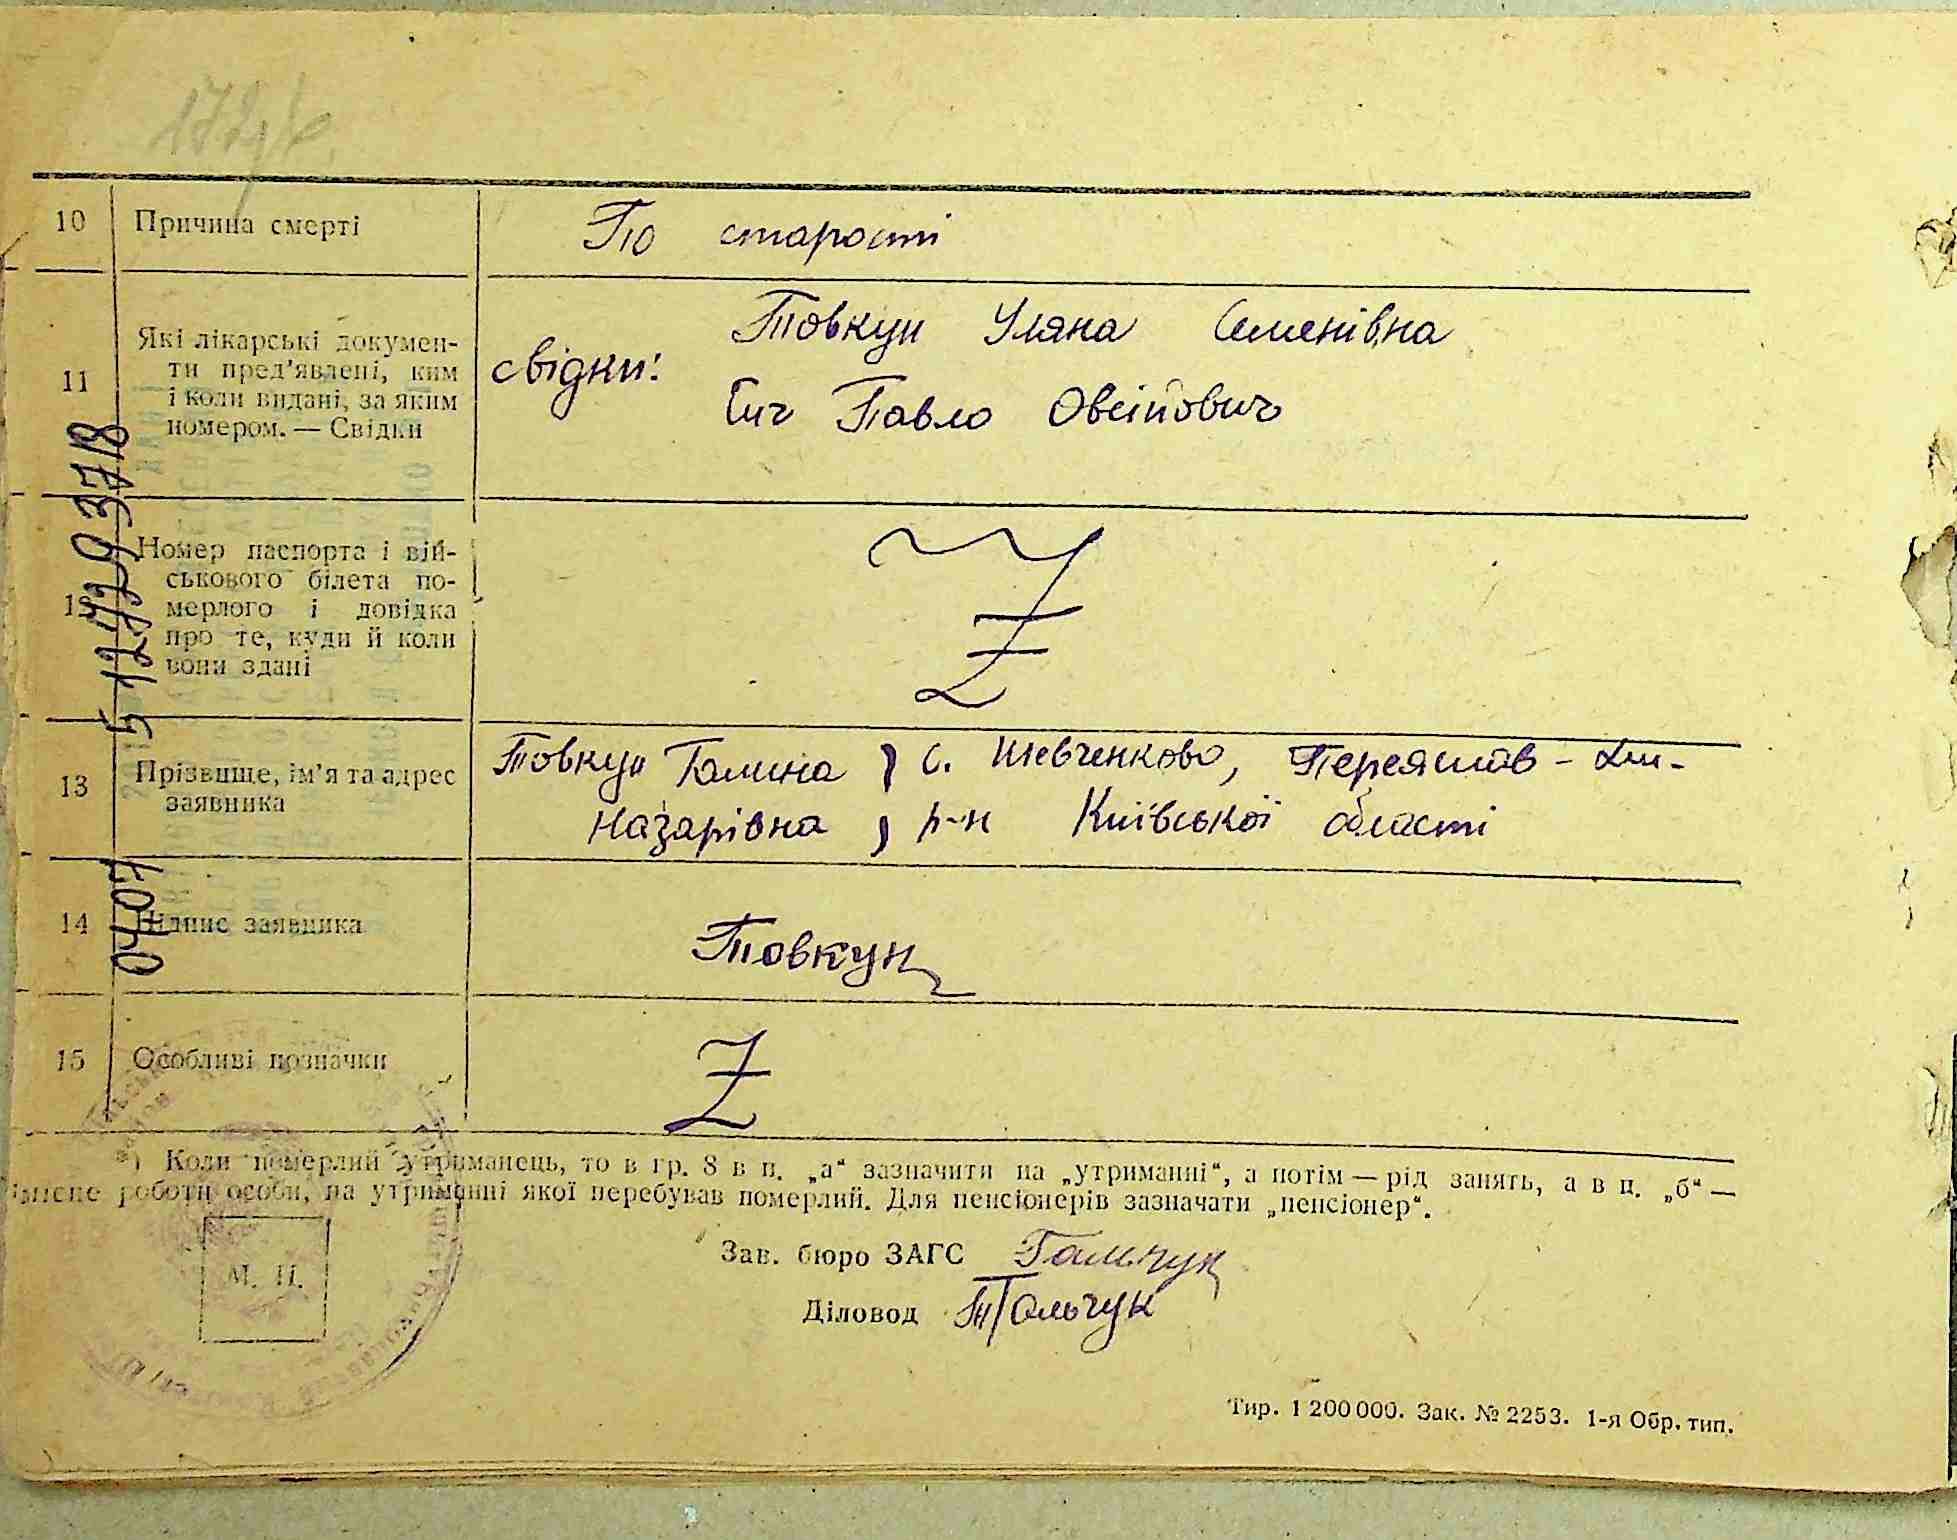 10 Причина смерті По старості
11 Які лікарські докумен-
ти пред'явлені, ким
і коли видані, за яким
номером. — Свідки
свідки: Товкун Уляна Семенівна
Сич Павло Овсійович
12 Номер паспорта і вій-
ськового білета по-
мерлого і довідка
про те, куди й коли
вони здані
13 Прізвище, ім'я та адрес
заявника
Товкун Галина , с. Шевченково, Переяслав-Хм-
Назарівна , р-н Київської області
14 Підпис заявника Товкун
15 Особливі позначки
*) Коли померлий утриманець, то в гр. 8 в п. „а“ зазначити на „утриманні“, а потім — рід занять, а в п. „б“ —
місце роботи особи, на утриманні якої перебував померлий. Для пенсіонерів зазначати „пенсіонер“.
М. П.
Зав. бюро ЗАГС Гальчук
Діловод Гальчук
Тир. 1 200 000. Зак. № 2253. 1-я Обр. тип.